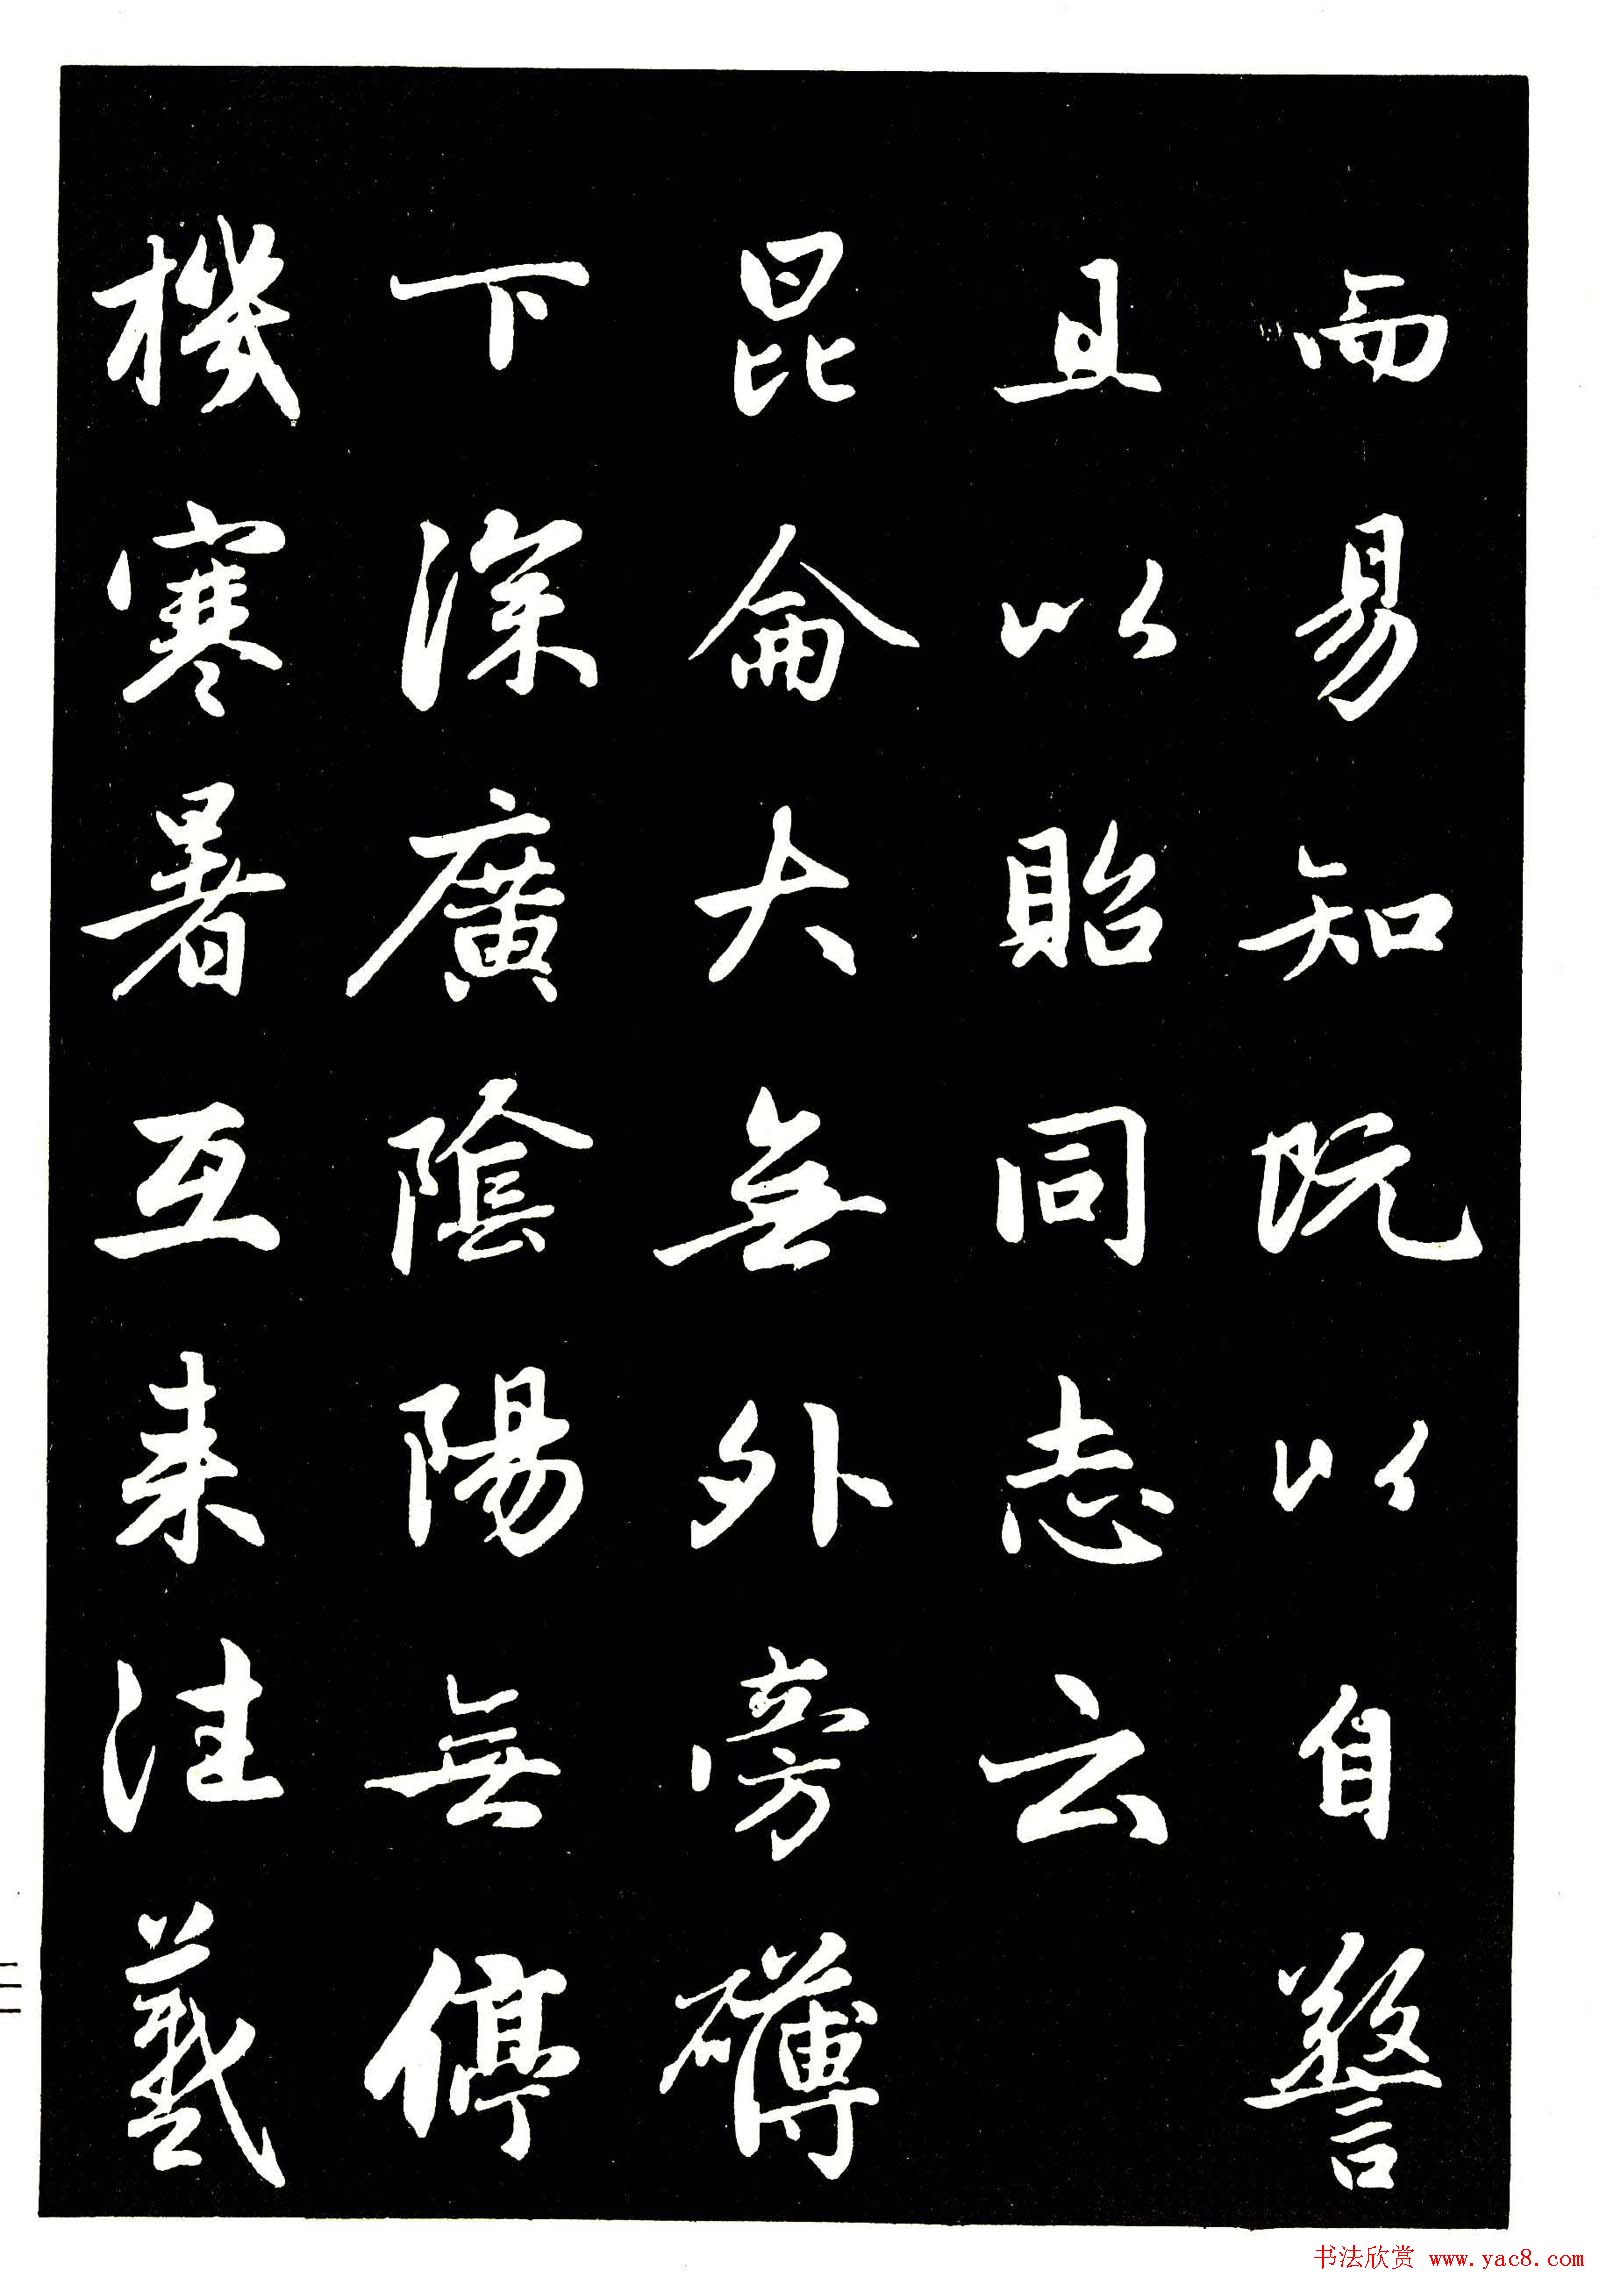 而易知既以自警
且以貽同志云
昆侖大無外旁礴
下深廣陰陽無停
機寒暑互来往羲
二一
书法欣赏 www.yac8.com